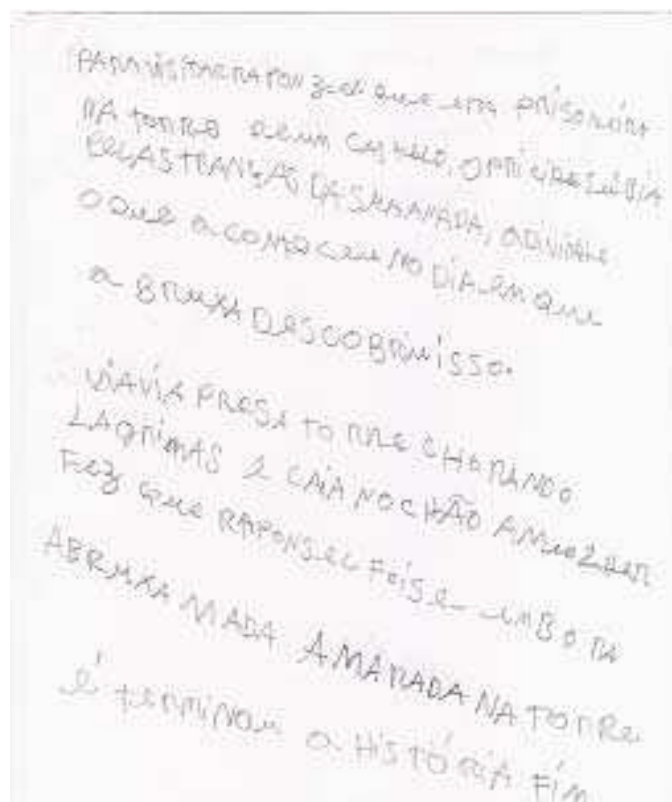 PARA VISITAR RAPONZEL QUE ERA PRISONEIRA
NA TORRE DE UM CASTELO, O PRICIPE SUBIA
PELAS TRANÇAS DA SUA AMADA, ADIVINHE
O QUE ACONTECEU NO DIA EM QUE
A BRUXA DESCOBRIU ISSO.
VIAVIA PRESA TORRE CHORANDO
LAGRIMAS E CAIA NO CHÃO A
FEZ QUE RAPONSEL FOISE EMBORA
ABRUXA MADA AMARADA NA TORRE
É TERMINOU A HISTÓRIA FIM